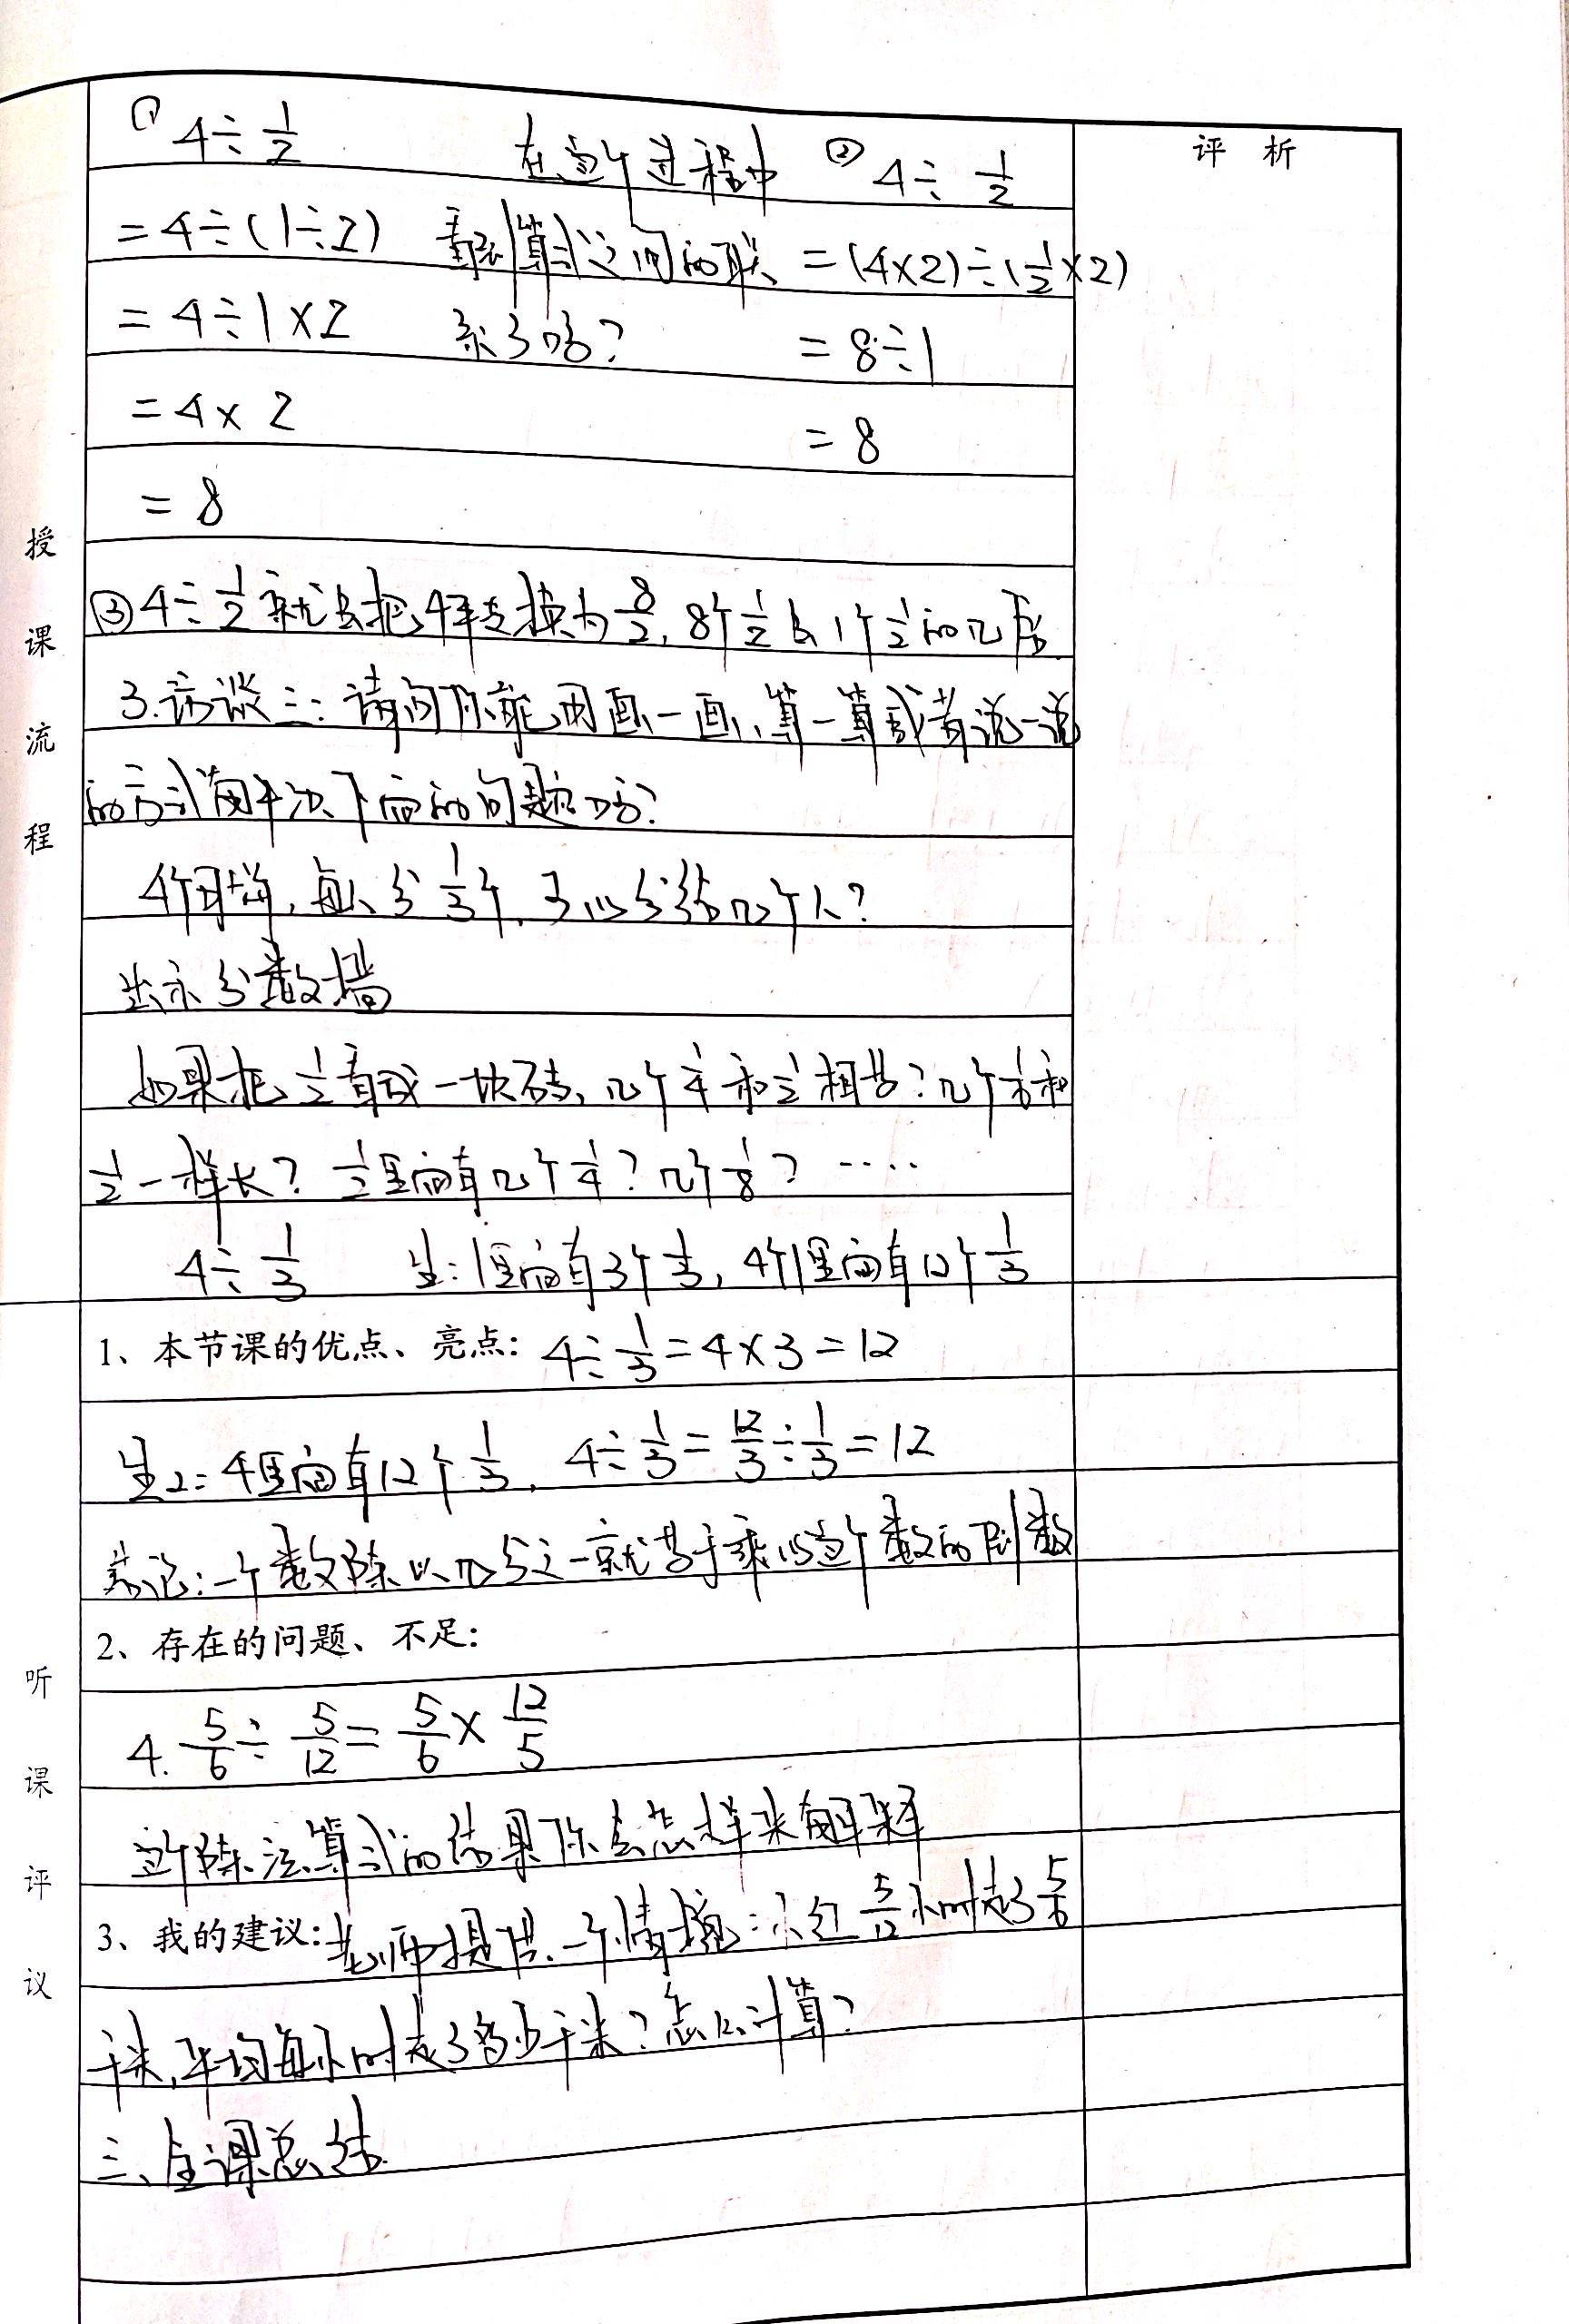 ① 4÷1/2 在这个过程中 ② 4÷1/2 评 析
=4÷(1÷2) 算式之间的联 =(4×2)÷(1/2×2)
=4÷1×2 系了吗? =8÷1
=4×2 =8
=8
③4÷1/2就是把4转换为8/2,8个1/2是1个1/2的几倍
3.访谈三:请问你能用画一画、算一算或者说一说
的方式解决下面的问题吗?
4个月饼,每人分1/3个,可以分给几个人?
出示分数墙
如果把1/2看成一块砖,几个1/4和1/2相等?几个和
1/2一样长?1/2里面有几个1/4?几个1/8?……
4÷1/3 生:1里面有3个1/3,4个1里面有12个1/3
授课流程
1、本节课的优点、亮点: 4÷1/3=4×3=12
生2:4里面有12个1/3,4÷1/3=12/3÷1/3=12
结论:一个数除以几分之一就等于乘以这个数的倒数
2、存在的问题、不足:
4.5/6÷5/12=5/6×12/5
这个除法算式的结果你会怎样来解释
3、我的建议:老师提供一个情境:小红5/12小时走了5/6
千米,平均每小时走了多少千米?怎么计算?
三、全课总结
听课评议